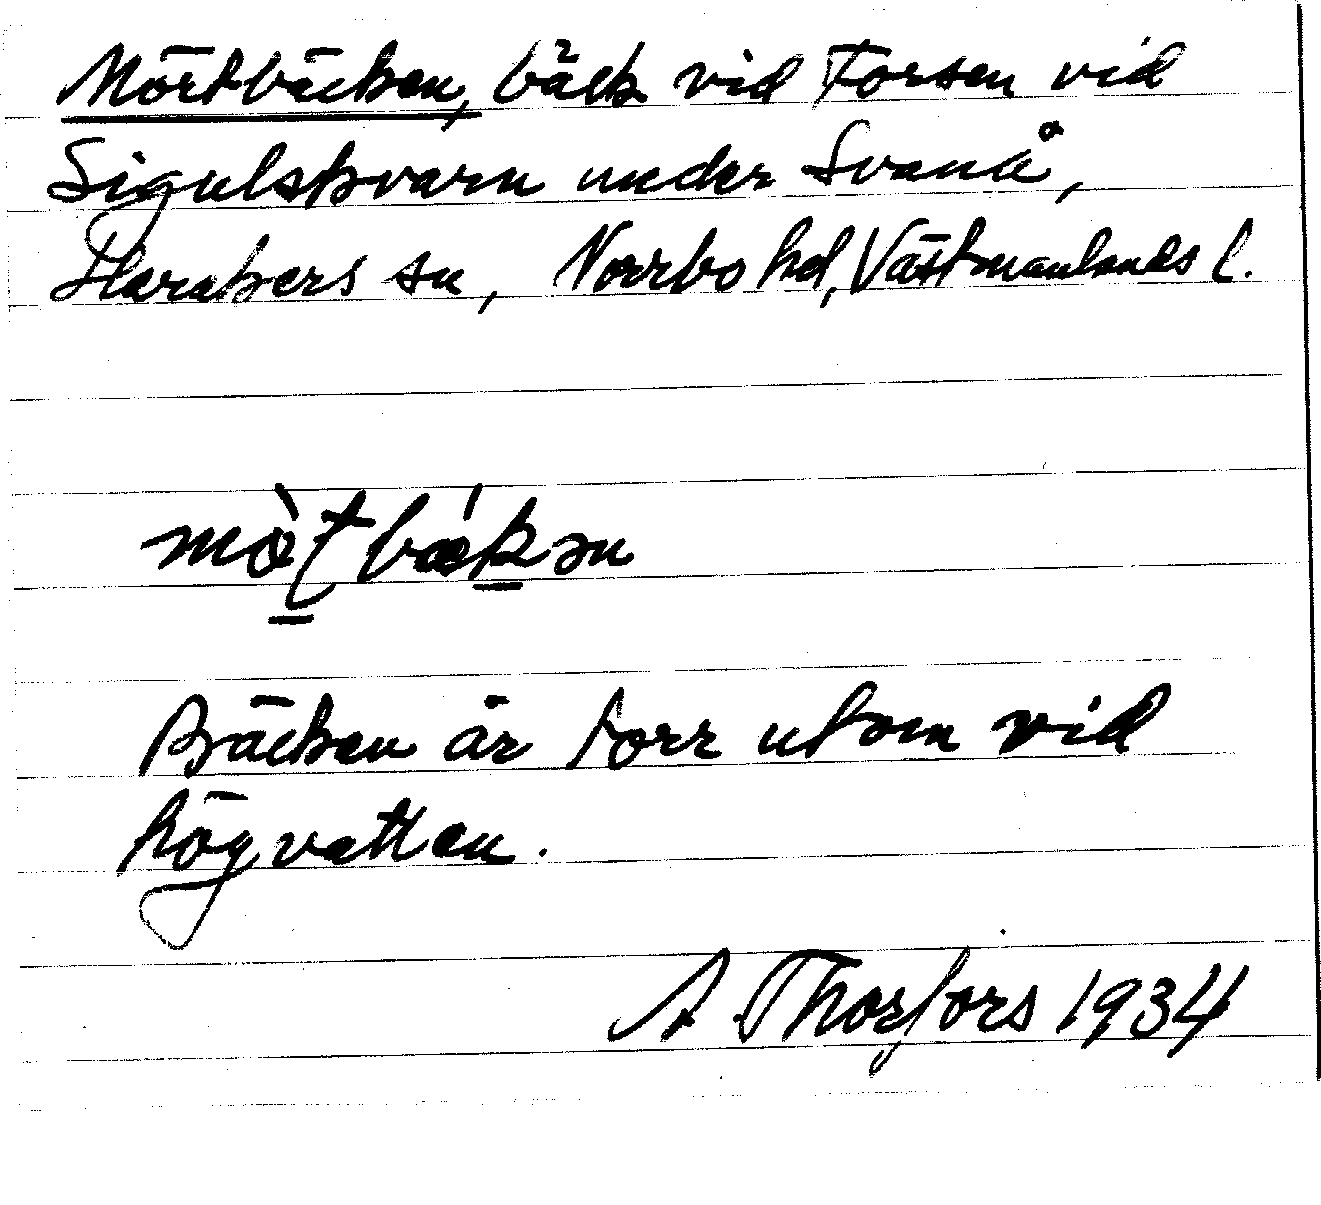 Mörtbäcken, bäck vid Forsen vid
Sigulskvarn under Svanå,
Harakers sn, Norrbo hd, Västmanlands l.
mò̱ʈbǽḵən
Bäcken är torr utom vid
högvatten.
A Thorfors 1934